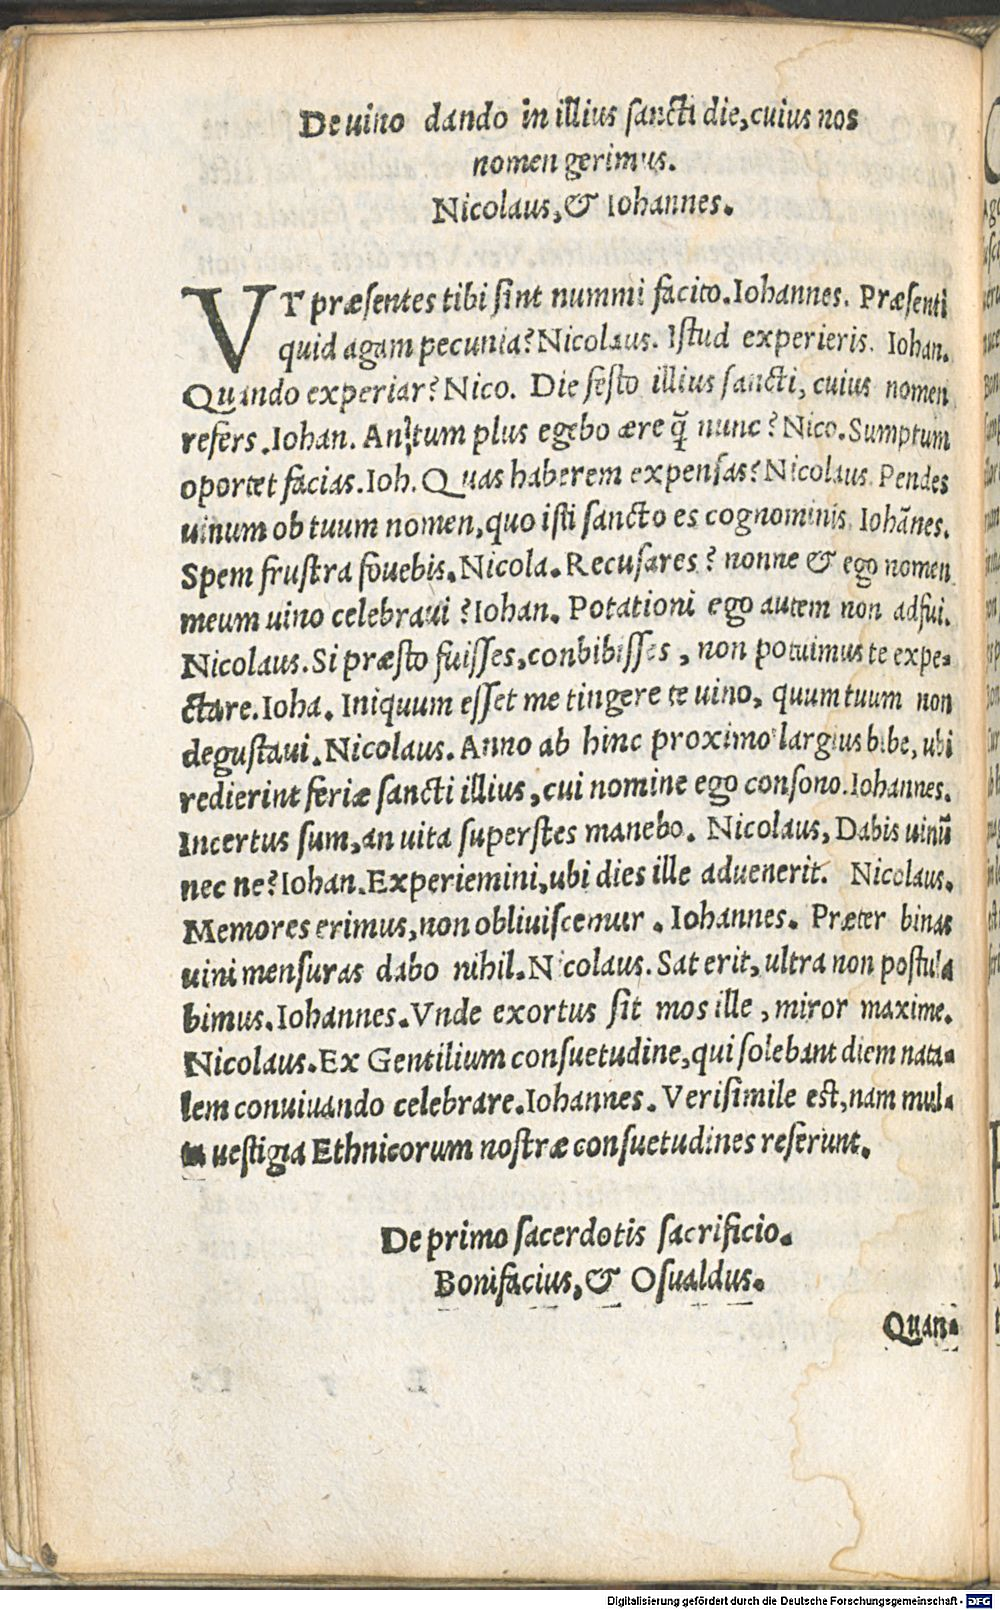 De uino dando in illius sancti die, cuius nos
nomen gerimus.
Nicolaus, & Iohannes.
VT præsentes tibi sint nummi facito. Iohannes. Præsenti
quid agam pecunia? Nicolaus. Istud experieris. Iohan.
Quando experiar? Nico. Die festo illius sancti, cuius nomen
refers. Iohan. An tum plus egebo ære q̃ nunc? Nico. Sumptum
oportet facias. Ioh. Quas haberem expensas? Nicolaus. Pendes
uinum ob tuum nomen, quo isti sancto es cognominis. Iohãnes.
Spem frustra fouebis. Nicola. Recusares? nonne & ego nomen
meum uino celebraui? Iohan. Potationi ego autem non adfui.
Nicolaus. Si præsto fuisses, conbibisses, non potuimus te expe-
ctare. Ioha. Iniquum esset me tingere te uino, quum tuum non
degustaui. Nicolaus. Anno ab hinc proximo largius bibe, ubi
redierint feriæ sancti illius, cui nomine ego consono. Iohannes.
Incertus sum, an uita superstes manebo. Nicolaus, Dabis uinũ
nec ne? Iohan. Experiemini, ubi dies ille aduenerit. Nicolaus.
Memores erimus, non obliuiscemur. Iohannes. Præter binas
uini mensuras dabo nihil. Nicolaus. Sat erit, ultra non postula
bimus. Iohannes. Vnde exortus sit mos ille, miror maxime.
Nicolaus. Ex Gentilium consuetudine, qui solebant diem nata-
lem conuiuando celebrare. Iohannes. Verisimile est, nam mul-
ta uestigia Ethnicorum nostræ consuetudines referunt.
De primo sacerdotis sacrificio.
Bonifacius, & Osualdus.
Quan-
Digitalisierung gefördert durch die Deutsche Forschungsgemeinschaft - DFG